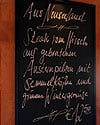 Aus Neuseeland
Steak vom Hirsch
mit gebratenen
Austernpilzen mit
Semmelknödeln und
grünem
€